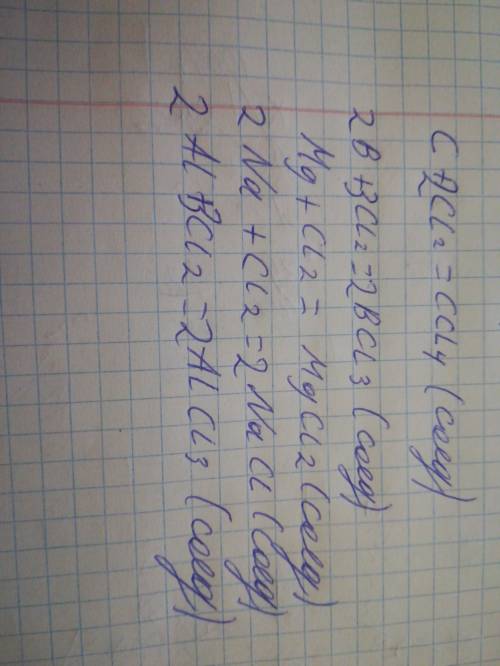 C+2Cl₂=CCl₄ (соед)
2B+3Cl₂=2BCl₃ (соед)
Mg+Cl₂=MgCl₂ (соед)
2Na+Cl₂=2NaCl (соед)
2Al+3Cl₂=2AlCl₃ (соед)